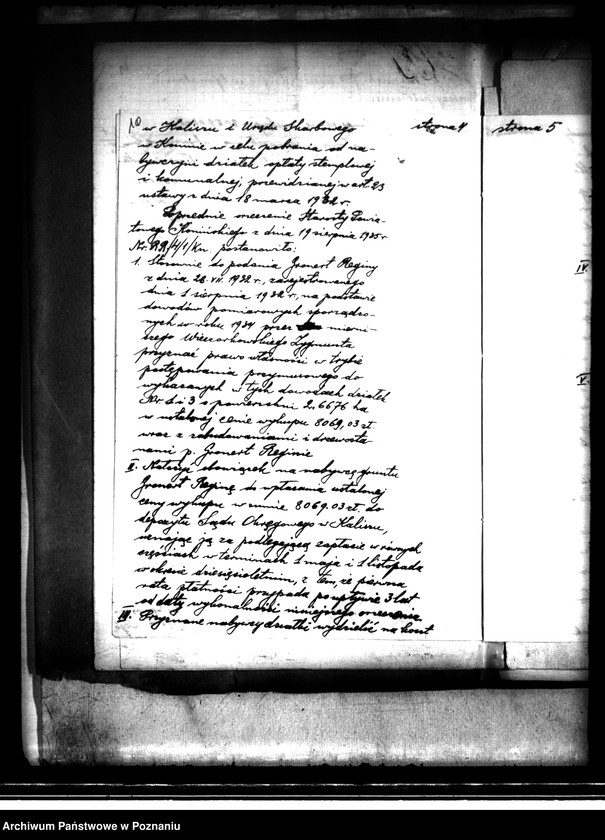 w Kaliszu i Urzędu Skarbowego
w Koninie w celu pobrania od na-
bywczyni działek opłaty stemplowej
i komunalnej, przewidzianej w art 23
ustawy z dnia 18 marca 1932 r.
Poprzednie orzeczenie Starosty Powia-
towego Konińskiego z dnia 19 sierpnia 1935 r
Nr. RR/4/1/Kn postanowiło:
1. Stosownie do podania Gronert Reginy
z dnia 28.VII.1932 r., zarejestrowanego
dnia 1 sierpnia 1932 r., na podstawie
dowodów pomiarowych sporządzo-
nych w roku 1934 przez mierni-
czego Wieczorkowskiego Zygmunta
przyznać prawo własności w trybie
postępowania przymusowego do
wykazanych w tych dowodach działek
Nr 2 i 3 o powierzchni 2,6676 ha
w ustalonej cenie wykupu 8069,03 zł.
wraz z zabudowaniami i drzewosta-
nami p. Gronert Reginie
II. Nałożyć obowiązek na nabywcę gruntu
Gronert Reginę do wpłacenia ustalonej
ceny wykupu w sumie 8069.03 zł. do
depozytu Sądu Okręgowego w Kaliszu,
uznając ją za podlegającą zapłacie w równych
częściach w terminach 1 maja i 1 listopada
w okresie dziesięcioletnim, z tem, że pierwsza
rata płatności przypada po upływie 3 lat
od daty wykonalności niniejszego orzeczenia
III. Przyznane nabywcy działki wydzielić na koszt
strona 4
strona 5
IV.
V.
Archiwum Państwowe w Poznaniu